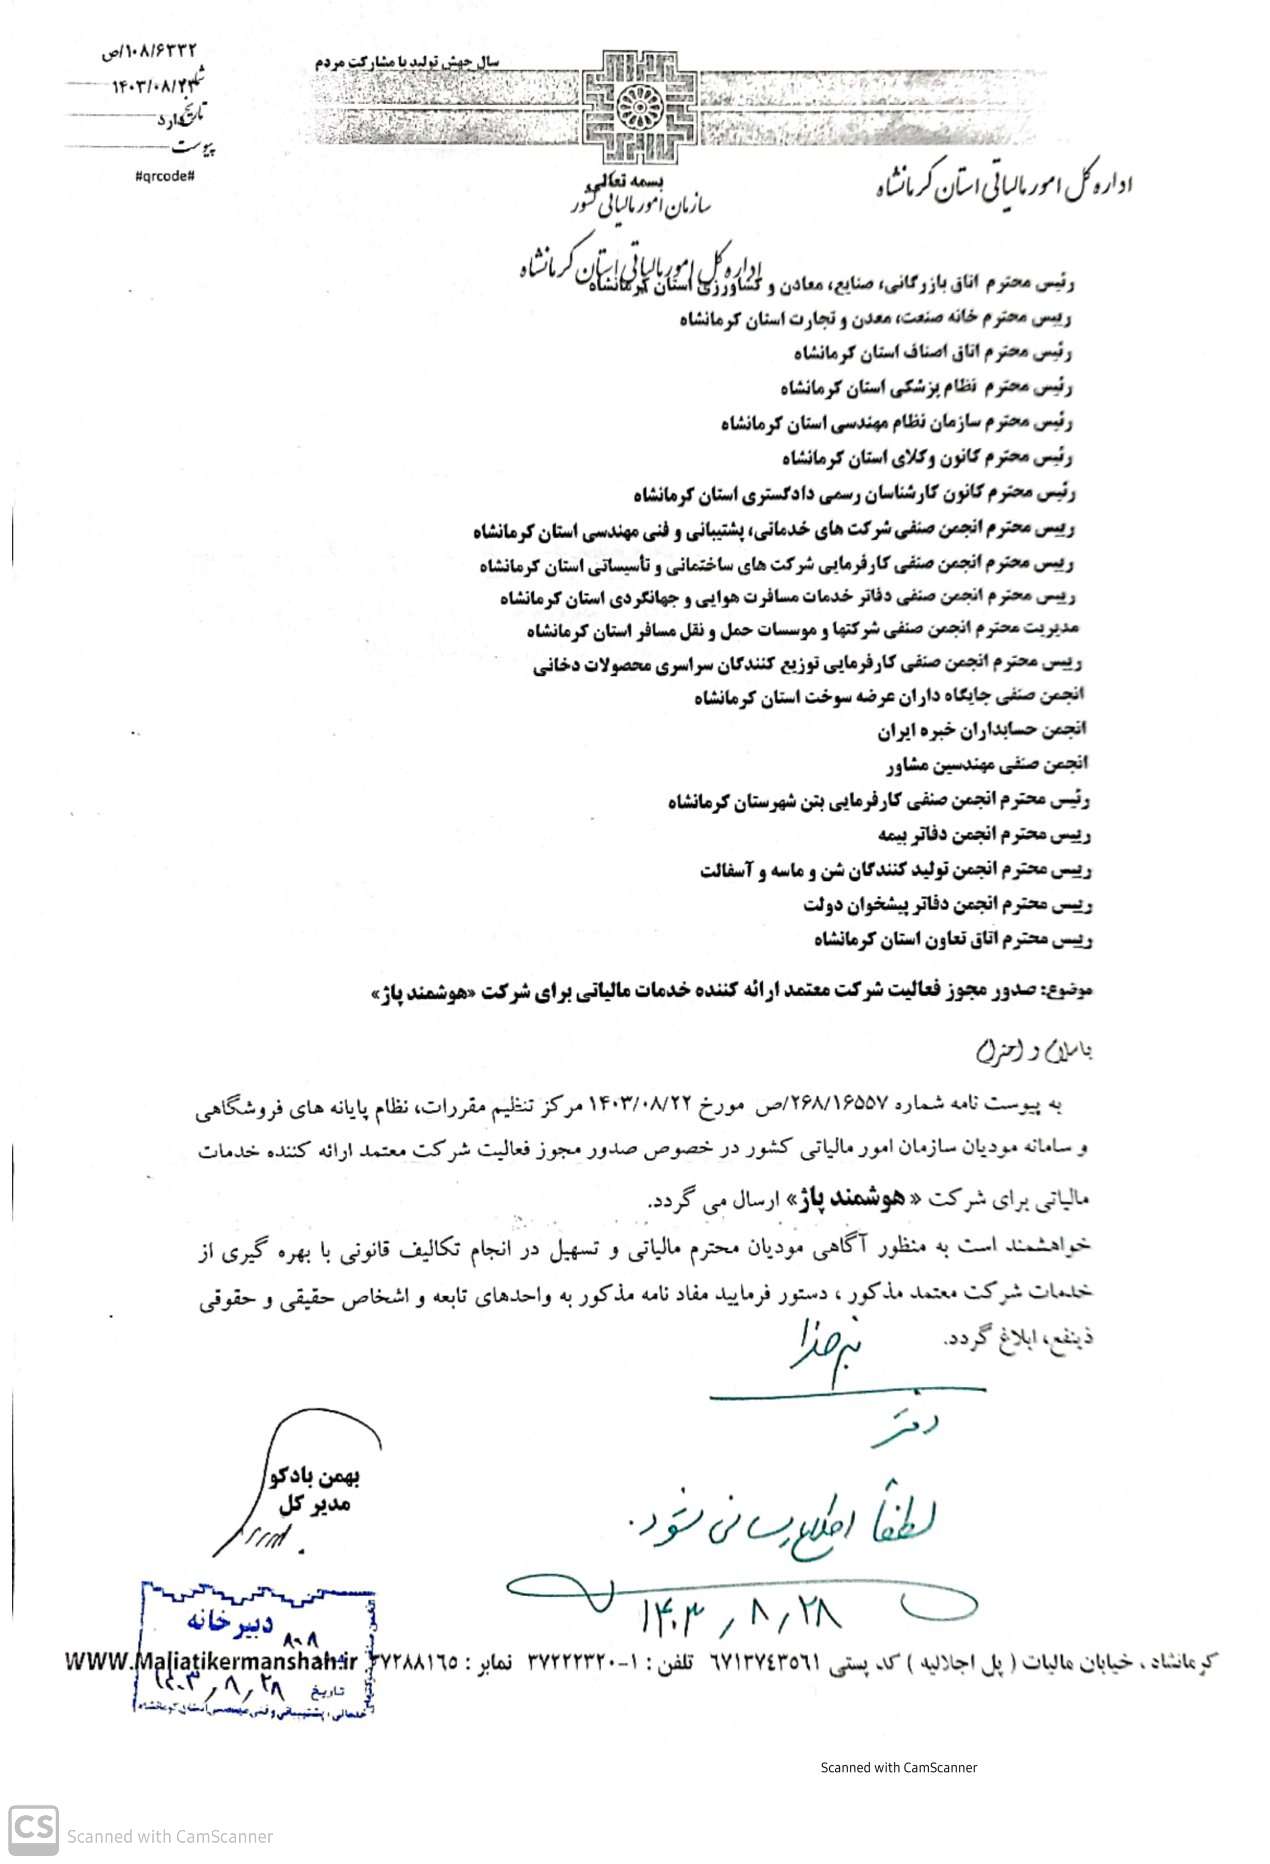 ۱۰۸/۶۳۳۲/ص
۱۴۰۳/۰۸/۲۳
تاریخ
دارد
پیوست
#qrcode#
سال جهش تولید با مشارکت مردم
بسمه تعالی
سازمان امور مالیاتی کشور
اداره کل امور مالیاتی استان کرمانشاه
اداره کل امور مالیاتی استان کرمانشاه
رئیس محترم اتاق بازرگانی، صنایع، معادن و کشاورزی استان کرمانشاه
رییس محترم خانه صنعت، معدن و تجارت استان کرمانشاه
رئیس محترم اتاق اصناف استان کرمانشاه
رئیس محترم نظام پزشکی استان کرمانشاه
رئیس محترم سازمان نظام مهندسی استان کرمانشاه
رئیس محترم کانون وکلای استان کرمانشاه
رئیس محترم کانون کارشناسان رسمی دادگستری استان کرمانشاه
رییس محترم انجمن صنفی شرکت های خدماتی، پشتیبانی و فنی مهندسی استان کرمانشاه
رییس محترم انجمن صنفی کارفرمایی شرکت های ساختمانی و تأسیساتی استان کرمانشاه
رییس محترم انجمن صنفی دفاتر خدمات مسافرت هوایی و جهانگردی استان کرمانشاه
مدیریت محترم انجمن صنفی شرکتها و موسسات حمل و نقل مسافر استان کرمانشاه
رییس محترم انجمن صنفی کارفرمایی توزیع کنندگان سراسری محصولات دخانی
انجمن صنفی جایگاه داران عرضه سوخت استان کرمانشاه
انجمن حسابداران خبره ایران
انجمن صنفی مهندسین مشاور
رئیس محترم انجمن صنفی کارفرمایی بتن شهرستان کرمانشاه
رییس محترم انجمن دفاتر بیمه
رییس محترم انجمن تولید کنندگان شن و ماسه و آسفالت
رییس محترم انجمن دفاتر پیشخوان دولت
رییس محترم اتاق تعاون استان کرمانشاه
موضوع: صدور مجوز فعالیت شرکت معتمد ارائه کننده خدمات مالیاتی برای شرکت «هوشمند پاژ»
باسلام و احترام
به پیوست نامه شماره ۲۶۸/۱۶۵۵۷/ص مورخ ۱۴۰۳/۰۸/۲۲ مرکز تنظیم مقررات، نظام پایانه های فروشگاهی
و سامانه مودیان سازمان امور مالیاتی کشور در خصوص صدور مجوز فعالیت شرکت معتمد ارائه کننده خدمات
مالیاتی برای شرکت « هوشمند پاژ» ارسال می گردد.
خواهشمند است به منظور آگاهی مودیان محترم مالیاتی و تسهیل در انجام تکالیف قانونی با بهره گیری از
خدمات شرکت معتمد مذکور ، دستور فرمایید مفاد نامه مذکور به واحدهای تابعه و اشخاص حقیقی و حقوقی
ذینفع، ابلاغ گردد.
دفتر
لطفاً اطلاع رسانی شود.
۱۴۰۳/۸/۲۸
بهمن بادکو
مدیر کل
دبیرخانه
۸۰۸
تاریخ ۱۴۰۳/۸/۲۸
خدماتی، پشتیبانی و فنی مهندسی استان کرمانشاه
کرمانشاه ، خیابان مالیات ( پل اجلالیه ) کد پستی ۶۷۱۳۷۴۳۵۶۱ تلفن : ۱-۳۷۲۲۲۳۲۰ نمابر : ۳۷۲۸۸۱۶۵ WWW.Maliatikermanshah.ir
Scanned with CamScanner
CS Scanned with CamScanner